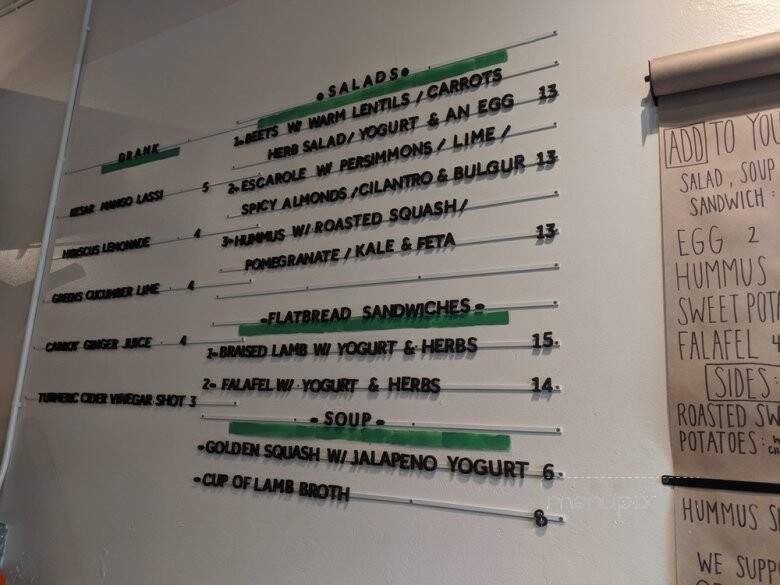 DRANK
KESAR MANGO LASSI 5
HIBISCUS LEMONADE 4
GREENS CUCUMBER LIME 4
CARROT GINGER JUICE 4
TURMERIC CIDER VINEGAR SHOT 3
•SALADS•
1- BEETS W/ WARM LENTILS / CARROTS
HERB SALAD/ YOGURT & AN EGG 13
2- ESCAROLE W/ PERSIMMONS / LIME /
SPICY ALMONDS /CILANTRO & BULGUR 13
3- HUMMUS W/ ROASTED SQUASH/
POMEGRANATE / KALE & FETA 13
-FLATBREAD SANDWICHES-
1- BRAISED LAMB W/ YOGURT & HERBS 15.
2- FALAFEL W/ YOGURT & HERBS 14.
- SOUP -
-GOLDEN SQUASH W/ JALAPENO YOGURT 6.
-CUP OF LAMB BROTH 8
ADD TO YOU
SALAD, SOUP
SANDWICH:
EGG 2
HUMMUS
SWEET POT
FALAFEL 4
SIDES:
ROASTED SW
POTATOES:
HUMMUS S
WE SUPP
menupix